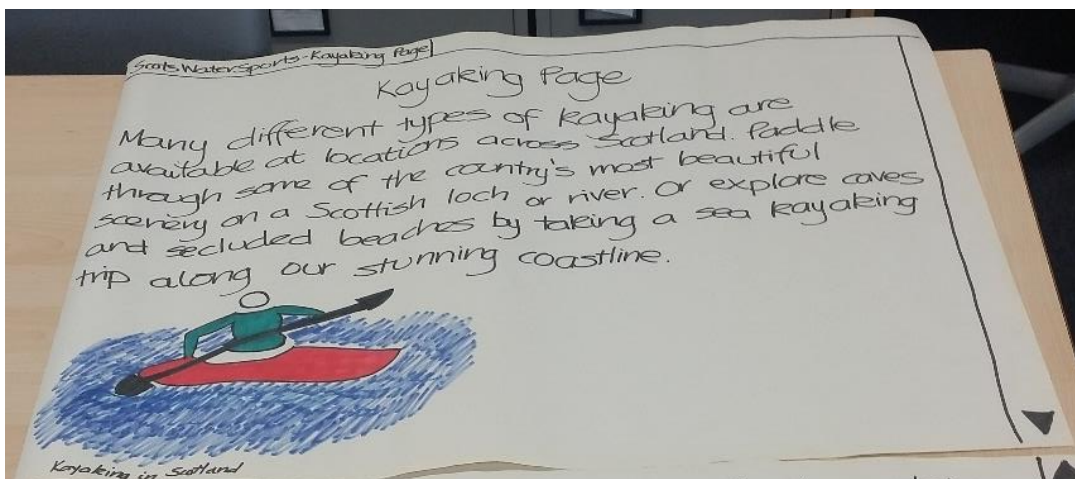 Scots Water Sports - Kayaking Page
Kayaking Page
Many different types of kayaking are
available at locations across Scotland. Paddle
through some of the country's most beautiful
scenery on a Scottish loch or river. Or explore caves
and secluded beaches by taking a sea kayaking
trip along our stunning coastline.
Kayaking in Scotland